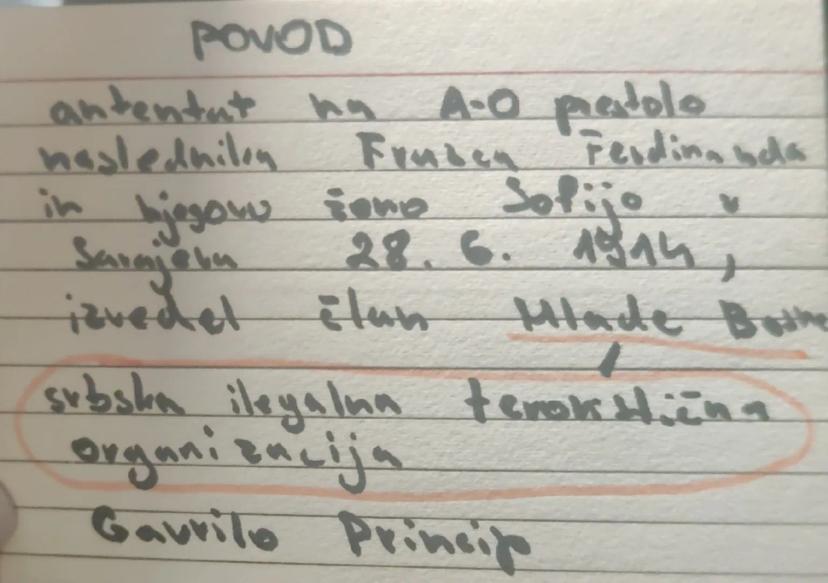 POVOD
antentat na A-O prestolo
naslednika Franza Ferdinanda
in njegovo ženo Sofijo v
Sarajevu 28. 6. 1914,
izvedel član Mlade Bosne
srbska ilegalna teroristična
organizacija
Gavrilo Princip